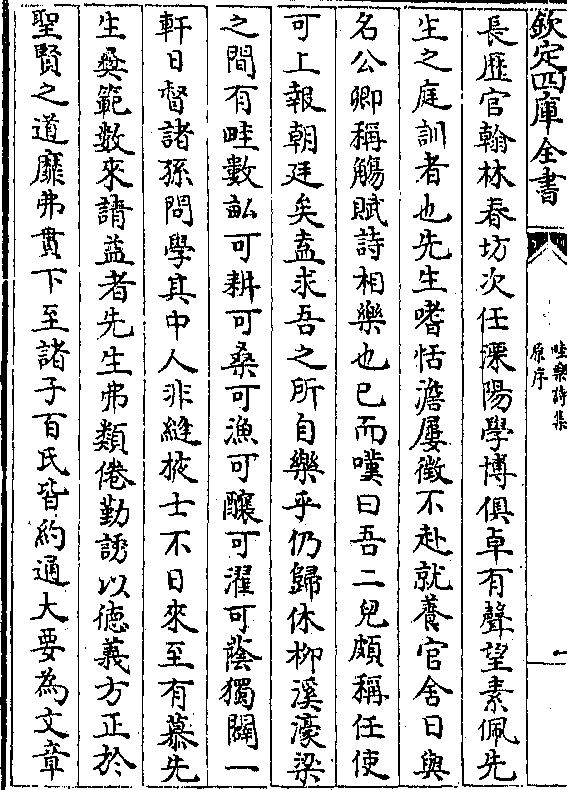 欽定四庫全書
畦樂詩集
原序
一
長歷官翰林春坊次任溧陽學博俱卓有聲望素佩先
生之庭訓者也先生嗜恬澹屢徵不赴就養官舍日與
名公卿稱觴賦詩相樂也已而嘆曰吾二兒頗稱任使
可上報朝廷矣盍求吾之所自樂乎仍歸休柳溪濠梁
之間有畦數畝可耕可桑可漁可釀可濯可蔭獨闢一
軒日督諸孫問學其中人非縫掖士不日來至有慕先
生彜範數來請益者先生弗類倦勤誘以德義方正於
聖賢之道靡弗貫下至諸子百氏皆約通大要為文章